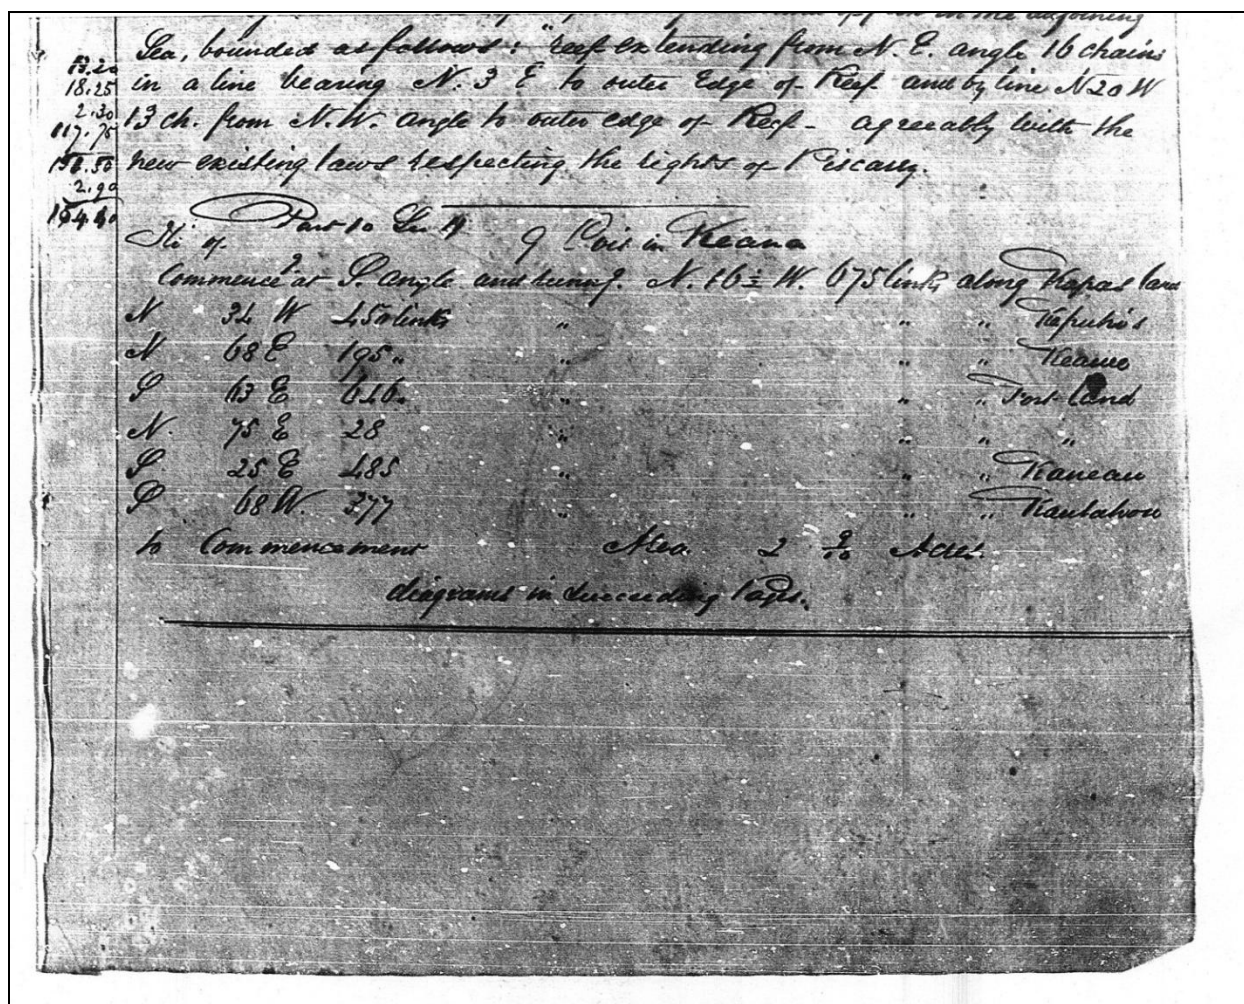 in the adjoining
Sea, bounded as follows: reef extending from N. E. angle 16 chains
in a line bearing N. 3 E to outer Edge of Reef and by line N 20 W
13 ch. from N. W. angle to outer edge of Reef - agreeably with the
new existing laws respecting the rights of Piscary.
13.20
18.25
2.30
117.75
2.90
Part 10 Sec
of
in Keana
Commence at S. angle and runng. N. 16 ½ W. 675 links along Kapas land
N 34 W 450 links " " " Kapuhi's
N 68 E 195 " " " "
S 63 E " " " Fort land
N. 75 E 28 " " " "
S 25 E 485 " " " Kaneau
S 68 W. 377 " " "
to Commencement Area 2 9/10 Acres.
diagrams in succeeding Pages.